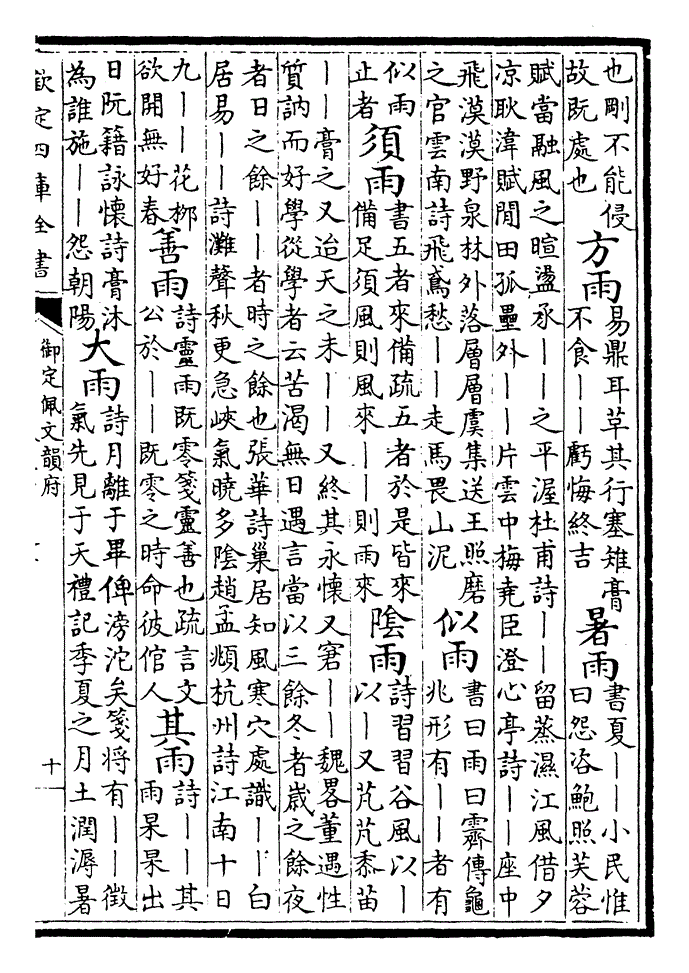 也剛不能侵
故既處也
方雨
易鼎耳革其行塞雉膏
不食——虧悔終吉
暑雨
書夏——小民惟
曰怨咨鮑照芙蓉
賦當融風之暄盪承——之平渥杜甫詩——留蒸濕江風借夕
凉耿湋賦閒田孤壘外——片雲中梅堯臣澄心亭詩——座中
飛漠漠野泉林外落層層虞集送王照磨
之官雲南詩飛鳶愁——走馬畏山泥
似雨
書曰雨曰霽傳龜
兆形有——者有
似雨
止者
須雨
書五者來備疏五者於是皆來
備足須風則風來——則雨來
陰雨
詩習習谷風以—
以—又芃芃黍苗
——膏之又迨天之未——又終其永懷又窘——魏畧董遇性
質訥而好學從學者云苦渴無日遇言當以三餘冬者歲之餘夜
者日之餘——者時之餘也張華詩巢居知風寒穴處識——白
居易——詩灘聲秋更急峽氣曉多陰趙孟頫杭州詩江南十日
九——花栁
欲開無好春
善雨
詩靈雨既零箋靈善也疏言文
公於——既零之時命彼倌人
其雨
詩——其
雨杲杲出
日阮籍詠懷詩膏沐
為誰施——怨朝陽
大雨
詩月離于畢俾滂沱矣箋將有——徵
氣先見于天禮記季夏之月土潤溽暑
欽定四庫全書
御定佩文韻府
十